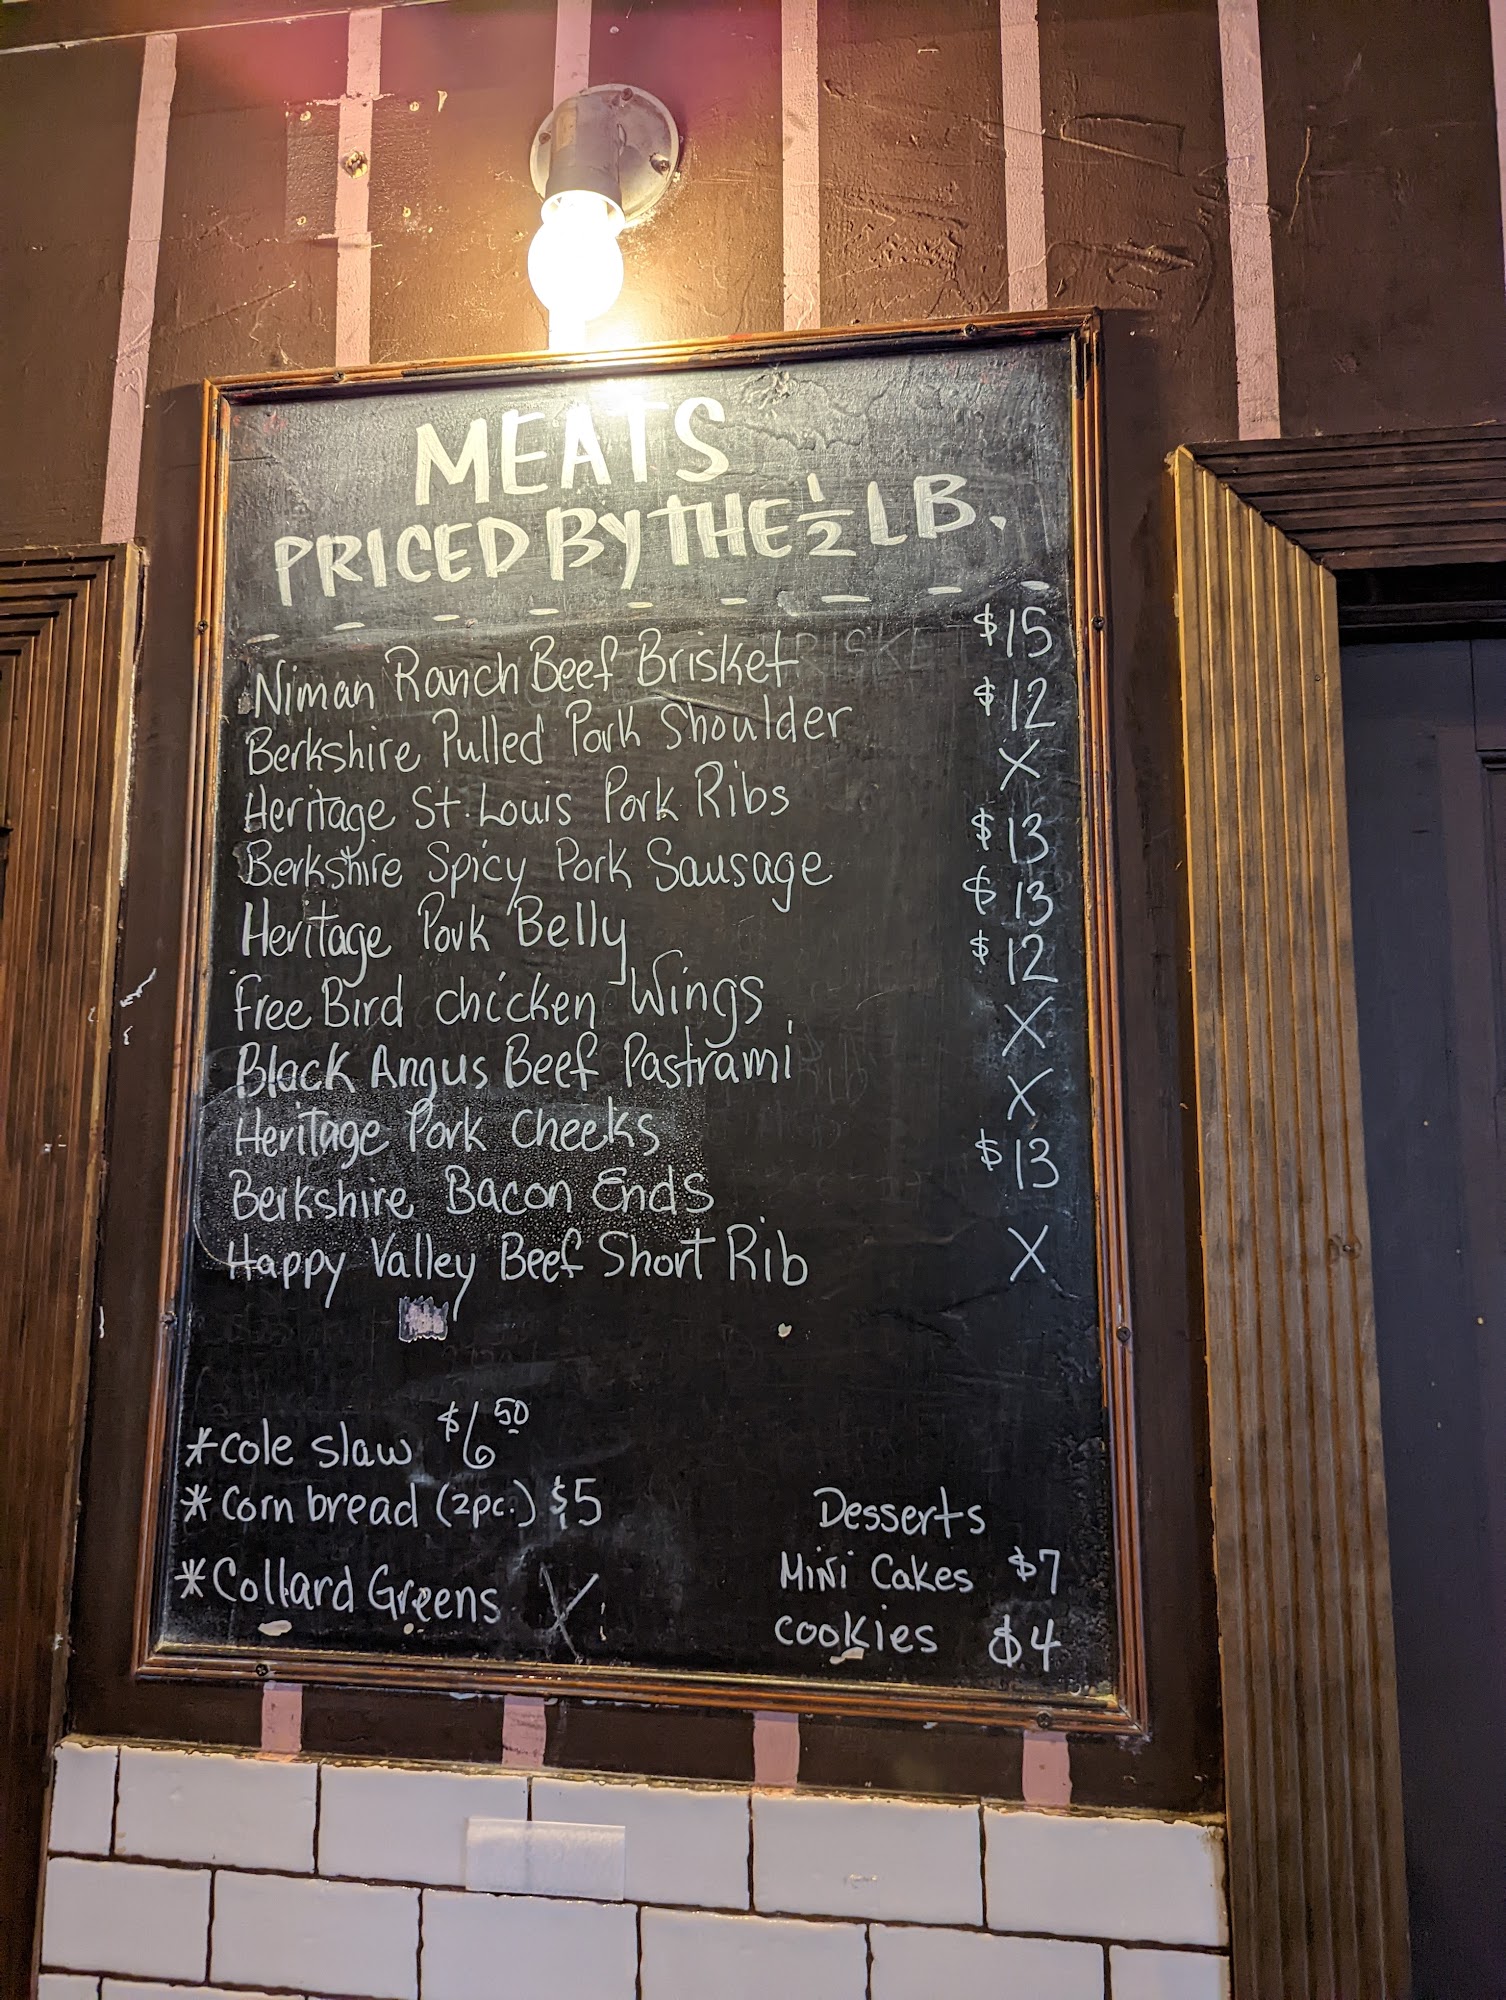 MEATS
PRICED BY THE 1/2 LB.
Niman Ranch Beef Brisket $15
Berkshire Pulled Pork Shoulder $12
Heritage St. Louis Pork Ribs X
Berkshire Spicy Pork Sausage $13
Heritage Pork Belly $13
Free Bird chicken Wings $12
Black Angus Beef Pastrami X
Heritage Pork Cheeks X
Berkshire Bacon Ends $13
Happy Valley Beef Short Rib X
*Cole slaw $6 50
*Corn bread (2pc.) $5
*Collard Greens X
Desserts
Mini Cakes $7
cookies $4